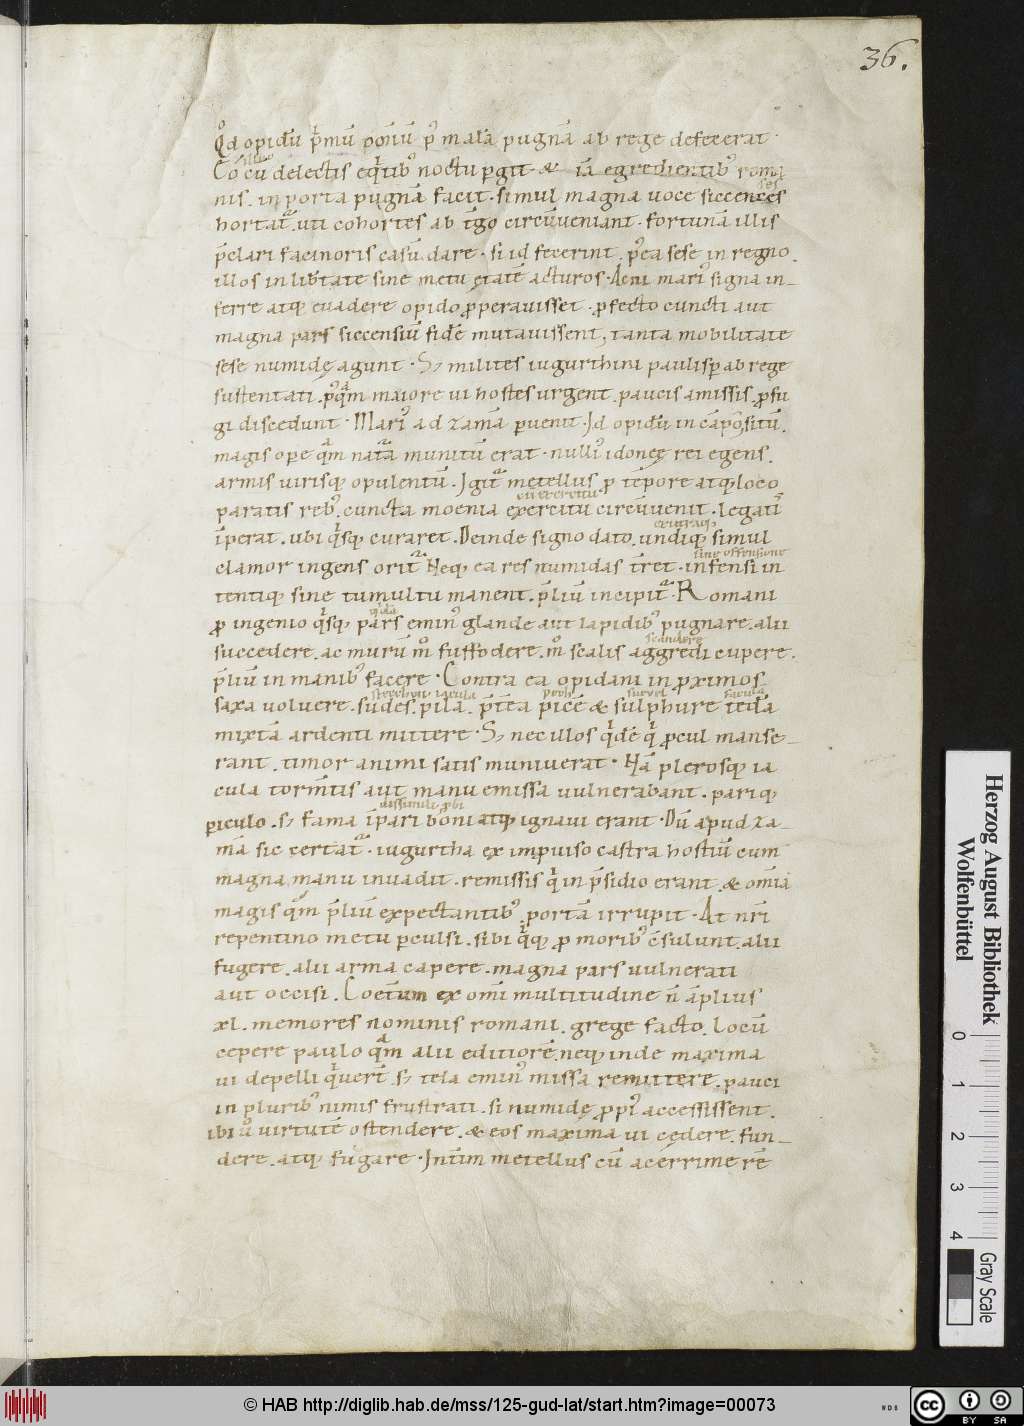 36.
Qđ opidū p̾mū om̅iū p̾ malā pugnā ab rege defecerat·
illuc
Eo cū delectis eq̾tib; noctu pgit· & iā egredientib; roma
nis. in porta pugnā facit· simul magna voce siccenses
ses
hortat̾. uti cohortes ab t̾go circūveniant· fortunā illis
p̄clari facinoris casū. dare· si id fecerint. p̾ea sese in regno.
illos in lib̾tate sine metu ętatē acturos· Ac ni mari; signa in-
ferre atq; evadere opido ꝓperavisset· ꝓfecto cuncti aut
magna pars siccensiū fidē mutavissent, tanta mobilitate
sese numidę agunt· S; milites iugurthini paulisꝑ ab rege
sustentati. p̾q̄m maiore vi hostes urgent. paucis amissis. ꝓfu
gi discedunt· Mari; ad zamā ꝑvenit· Id opidū in cāpo situ̅.
magis opere q̄m natā munitū erat· null; idoneę rei egens.
armis virisq; opulentū. Igit̾ metellus ꝓ tēpore atq; loco
cū exercitu
paratis reb;. cuncta moenia exercitu circūvenit. legati̅
īperat. ubi q̾sq; curaret. Deinde signo dato. undiq; simul
clamor ingens orit̾ Neq; ea res numidas t̾ret· infensi in
sine offensione
tentiq; sine tumultu manent. p̄liū incipit̾· Romani
ꝓ ingenio q̾sq; pars emin; glande aut lapidib; pugnare. alii
q̾dā
succedere. ac murū m̊ suffodere. m̊ scalis aggredi cupere.
scandere
p̄liū in manib; facere· Contra ea opidani in ꝓximos
saxa volvere. sudes. pila. p̄tea picē & sulphure tedā
mixtā ardenti mittere· S; nec illos q̾dē q̾ ꝓcul manse-
rant. timor animi satis muniverat· Nā plerosq; ia
cula torm̄tis aut manu emissa vulnerabant. pariq;
dissimili ꝓbi
ꝑiculo. s; fama īpari boni atq; ignavi erant· Dū apud za-
mā sic certat̾· iugurtha ex īmꝓviso castra hostiū cum
magna manu invadit. remissis q̾ in p̄sidio erant. & om̄ia
magis q̄m p̄liū expectantib;. portā irrupit· At nr̄i
repentino metu ꝑculsi. sibi q̾q; ꝓ morib; c̄sulunt. alii
fugere. alii arma capere. magna pars vulnerati
aut occisi. Coet̾um ex om̄i multitudine n̄ āplius
xl. memores nominis romani. grege facto. locū
cepere paulo q̄m alii editiorē. neq; inde maxima
vi depelli q̾ver̄t. s; tela emin; missa remittere. pauci
in plurib; nimis frustrati. si numidę ꝓp̾ accessissent.
ibi ū virtutē ostendere. & eos maxima vi cędere. fun-
dere. atq; fugare· Int̾im metellus cū acerrime rē
Herzog August Bibliothek
Wolfenbüttel
0 1 2 3 4
Gray Scale
© HAB http://diglib.hab.de/mss/125-gud-lat/start.htm?image=00073
cc BY SA